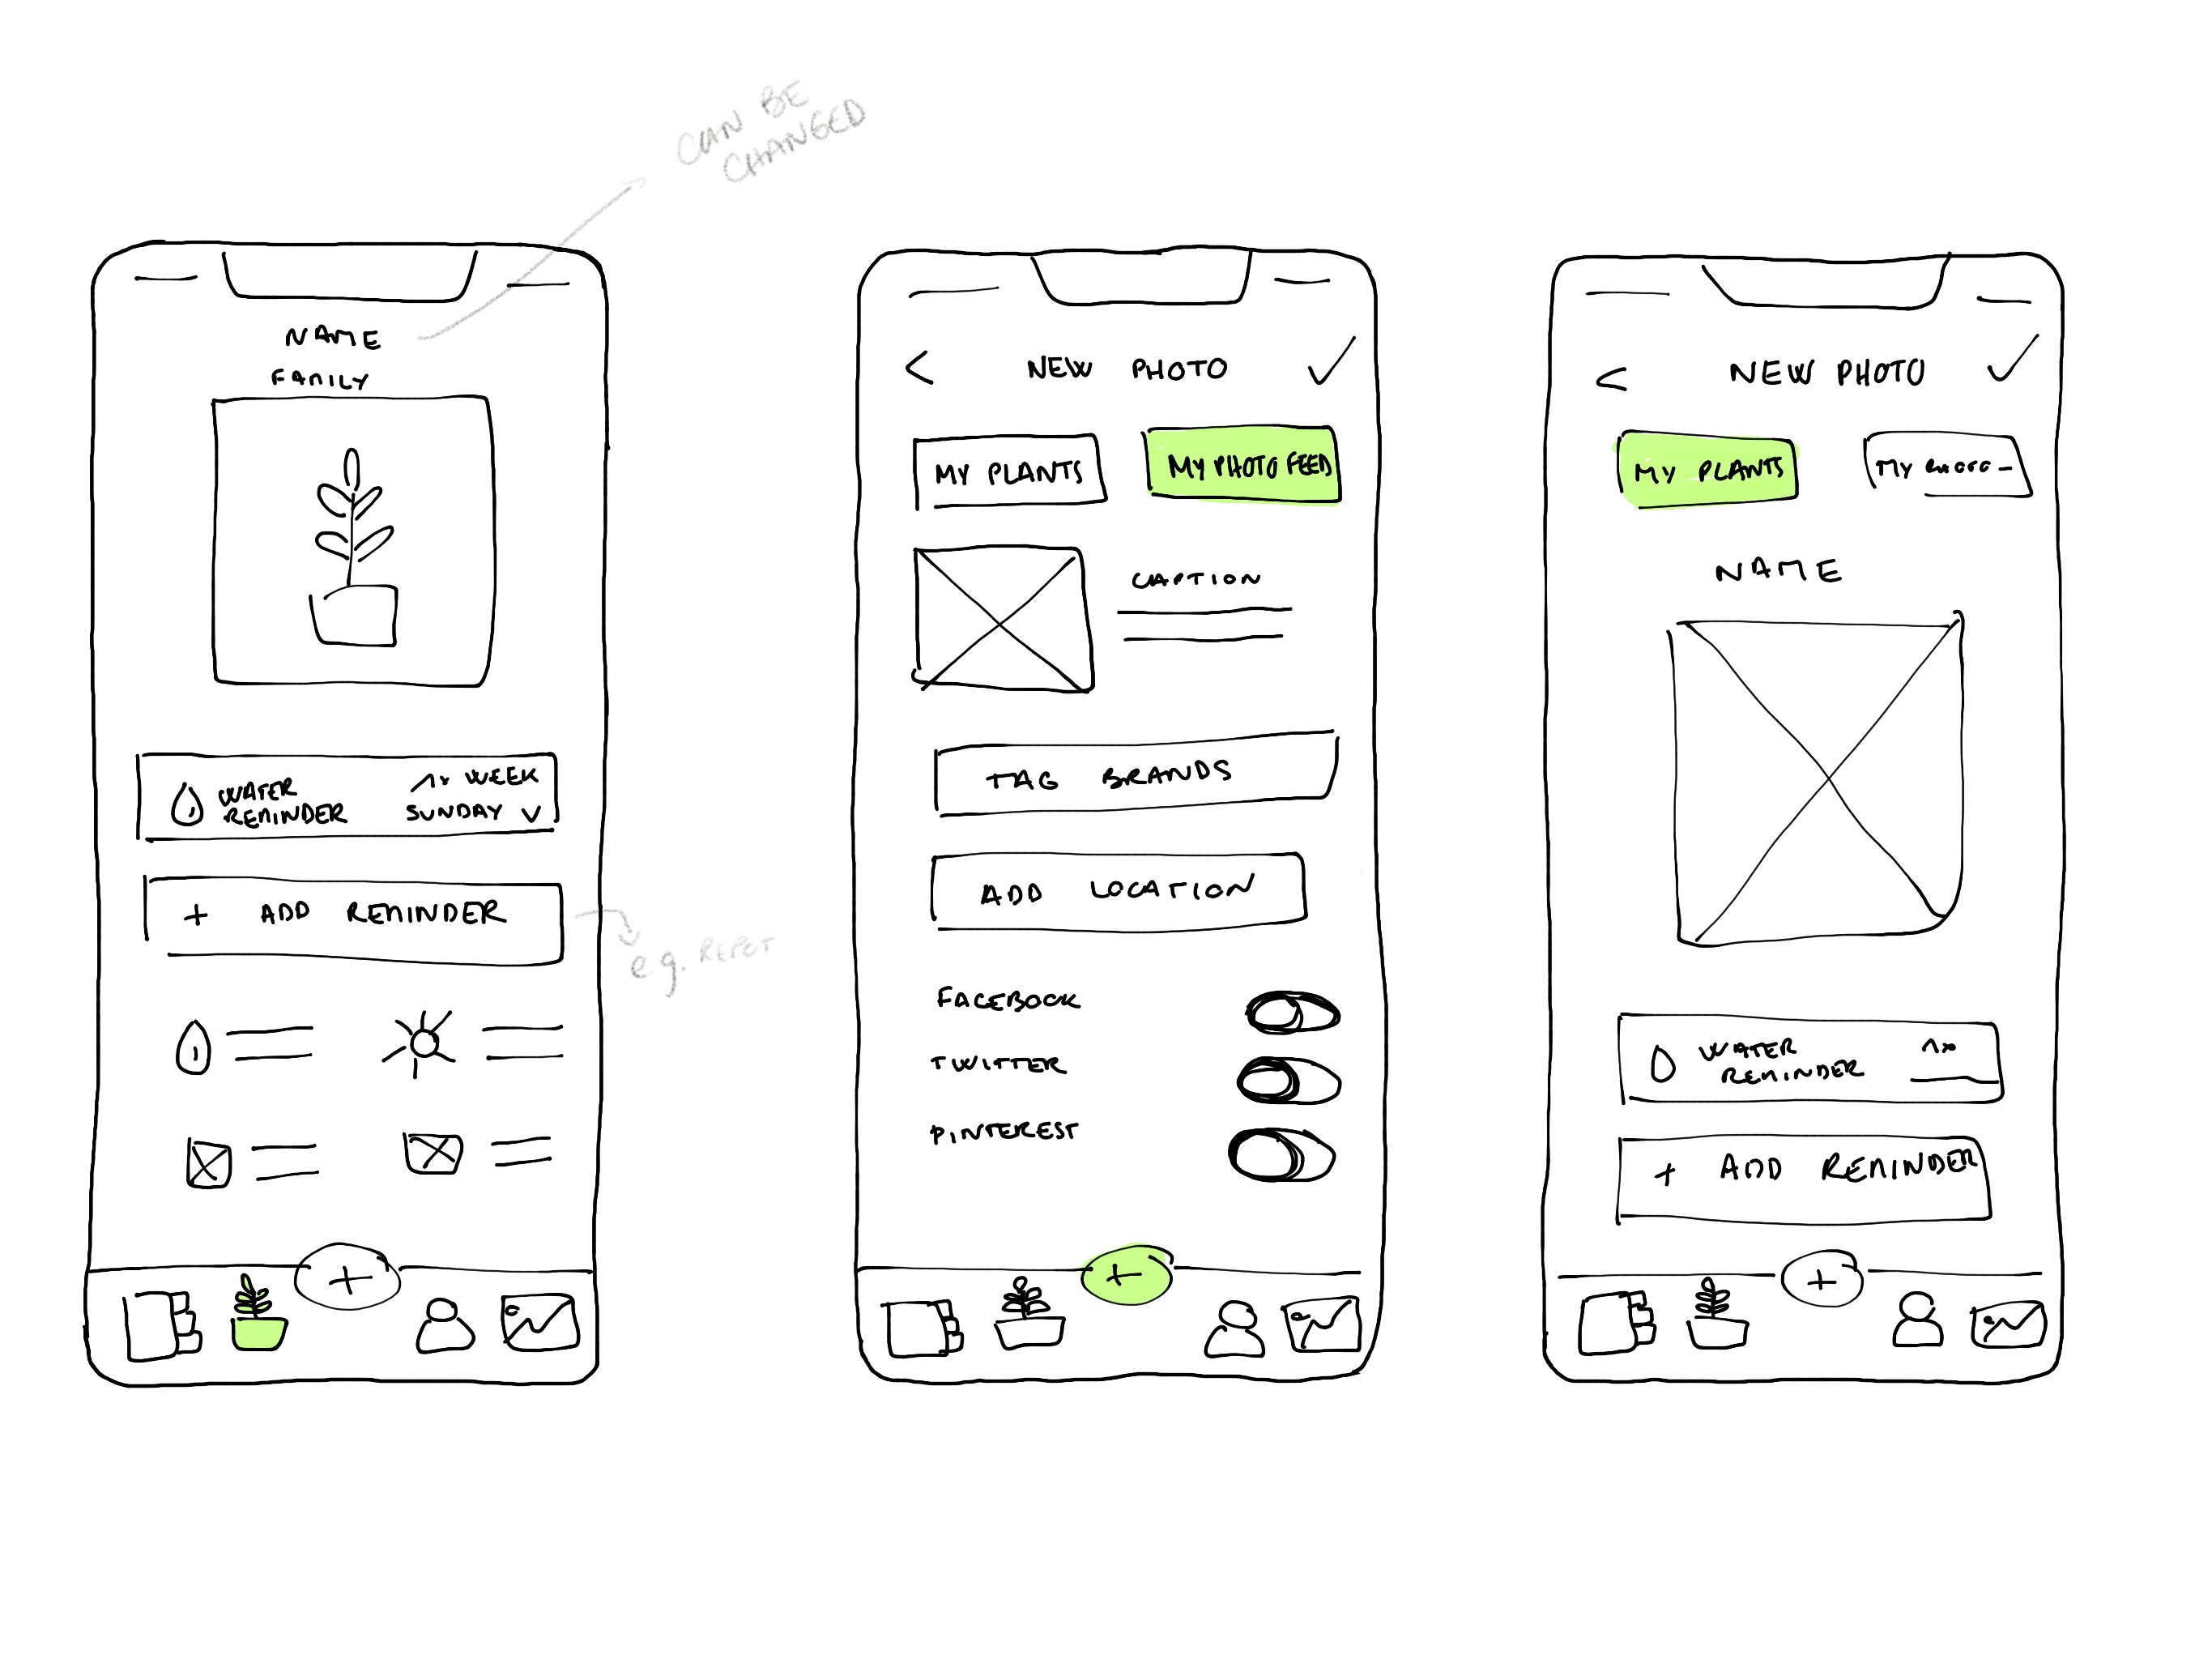 CAN BE
CHANGED
NAME
FAMILY
WATER
REMINDER
1x WEEK
SUNDAY
+ ADD REMINDER
e.g. REPOT
+
< NEW PHOTO
MY PLANTS
MY PHOTO FEED
CAPTION
TAG BRANDS
ADD LOCATION
FACEBOOK
TWITTER
PINTEREST
+
< NEW PHOTO
MY PLANTS
MY
NAME
WATER
REMINDER
1x
+ ADD REMINDER
+